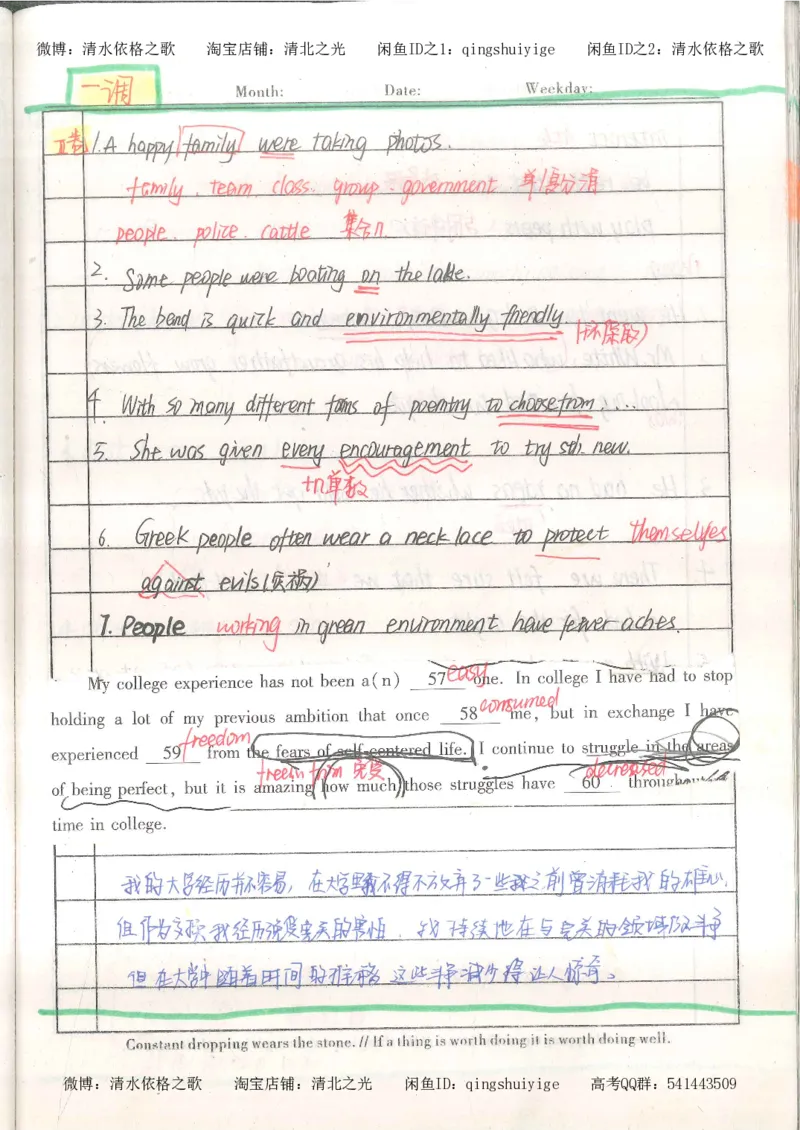 微博：清水依格之歌 淘宝店铺：清北之光 闲鱼ID之1：qingshuiyige 闲鱼ID之2：清水依格之歌
一调
Month: Date: Weekday:
II卷 1. A happy family were taking photos.
family. team class. group. government 单/复分清
people. police. cattle 集合n.
2. Some people were boating on the lake.
3. The bend is quick and environmentally friendly.
(环保的)
4. With so many different foms of poemtry to choose from ...
5. She was given every encouragement to try sth. new.
+n单数
6. Greek people often wear a necklace to protect themselves
against evils (灾祸)
7. People working in green environment have fewer aches.
My college experience has not been a(n) 57 easy one. In college I have had to stop
holding a lot of my previous ambition that once 58 consumed me, but in exchange I have
experienced 59 freedom from the fears of self-centered life. I continue to struggle in the areas
freein from 免受
of being perfect, but it is amazing how much those struggles have 60 decreased throughout
time in college.
我的大学经历并不容易，在大学里我不得不放弃了一些我之前曾消耗我的雄心，
但作为交换我经历免受完美的害怕，我持续地在与完美的领域及斗争
但在大学中随着时间的推移 这些斗争减少得让人惊奇。
Constant dropping wears the stone. // If a thing is worth doing it is worth doing well.
微博：清水依格之歌 淘宝店铺：清北之光 闲鱼ID：qingshuiyige 高考QQ群：541443509